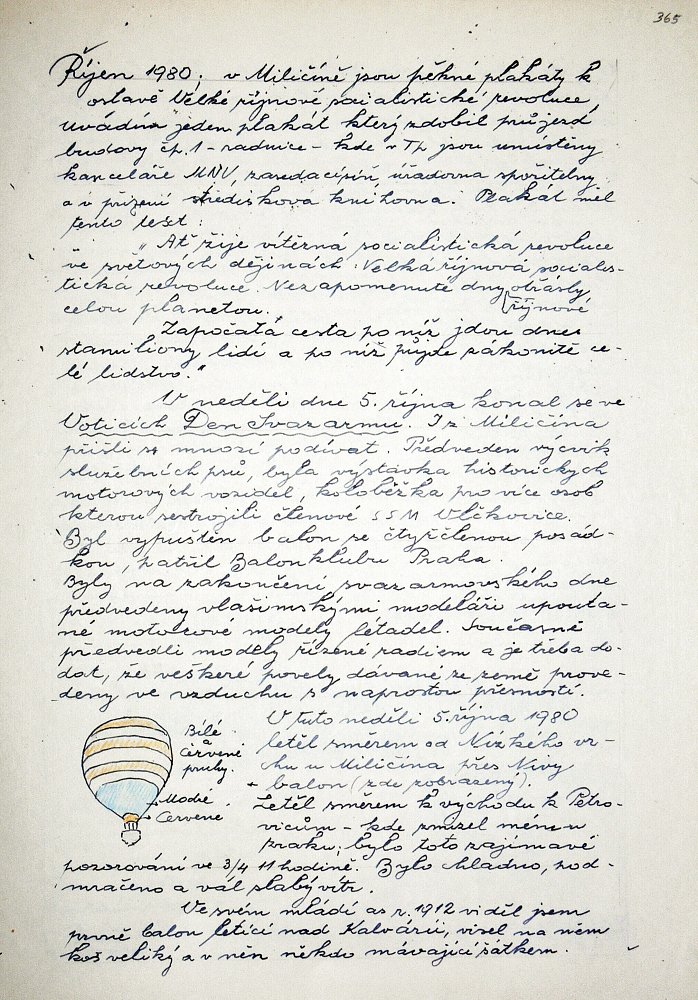 365
Říjen 1980; v Miličíně jsou pěkné plakáty k
oslavě Velké říjnové socialistické revoluce,
uvádím jeden plakát který zdobil průjezd
budovy čp. 1 - radnice - kde v Tp jsou umístěny
kanceláře MNV, zasedací síň, úřadovna spořitelny
a v přízemí středisková knihovna. Plakát měl
tento text:
„Ať žije vítězná socialistická revoluce
ve světových dějinách. Velká říjnová socialis-
tická revoluce. Nezapomenuté dny otřásly
celou planetou. říjnové
Započatá cesta po níž jdou dnes
stamiliony lidí a po níž půjde zákonitě ce-
lé lidstvo."
V neděli dne 5. října konal se ve
Voticích Den Svazarmu. I z Miličína
přišli se mnozí podívat. Předveden výcvik
služebních psů, byla výstavka historických
motorových vozidel, koloběžka pro více osob
kterou sestrojili členové SSM Vlčkovice.
Byl vypuštěn balon se čtyřčlenou posád-
kou, patřil Balonklubu Praha.
Byly na zakončení svazarmovského dne
předvedeny vlašimskými modeláři upouta-
né motorové modely létadel. Současně
předvedli modely řízené radiem a je třeba do-
dat, že veškeré povely dávané ze země prove-
deny ve vzduchu s naprostou přesností.
V tuto neděli 5. října 1980
letěl směrem od Nízkého vr-
chu u Miličína přes Nivy
balon (zde zobrazený).
Letěl směrem k východu k Petro-
vicům - kde zmizel mému
zraku; bylo toto zajímavé
pozorování ve 3/4 11 hodině. Bylo chladno, pod-
mračeno a vál slabý vítr.
Bílé
a
červené
pruhy.
Modré.
Červené
Ve svém mládí as r. 1912 viděl jsem
prvně balon letící nad Kalvárií, visel na něm
koš veliký a v něm někdo mávající šátkem.